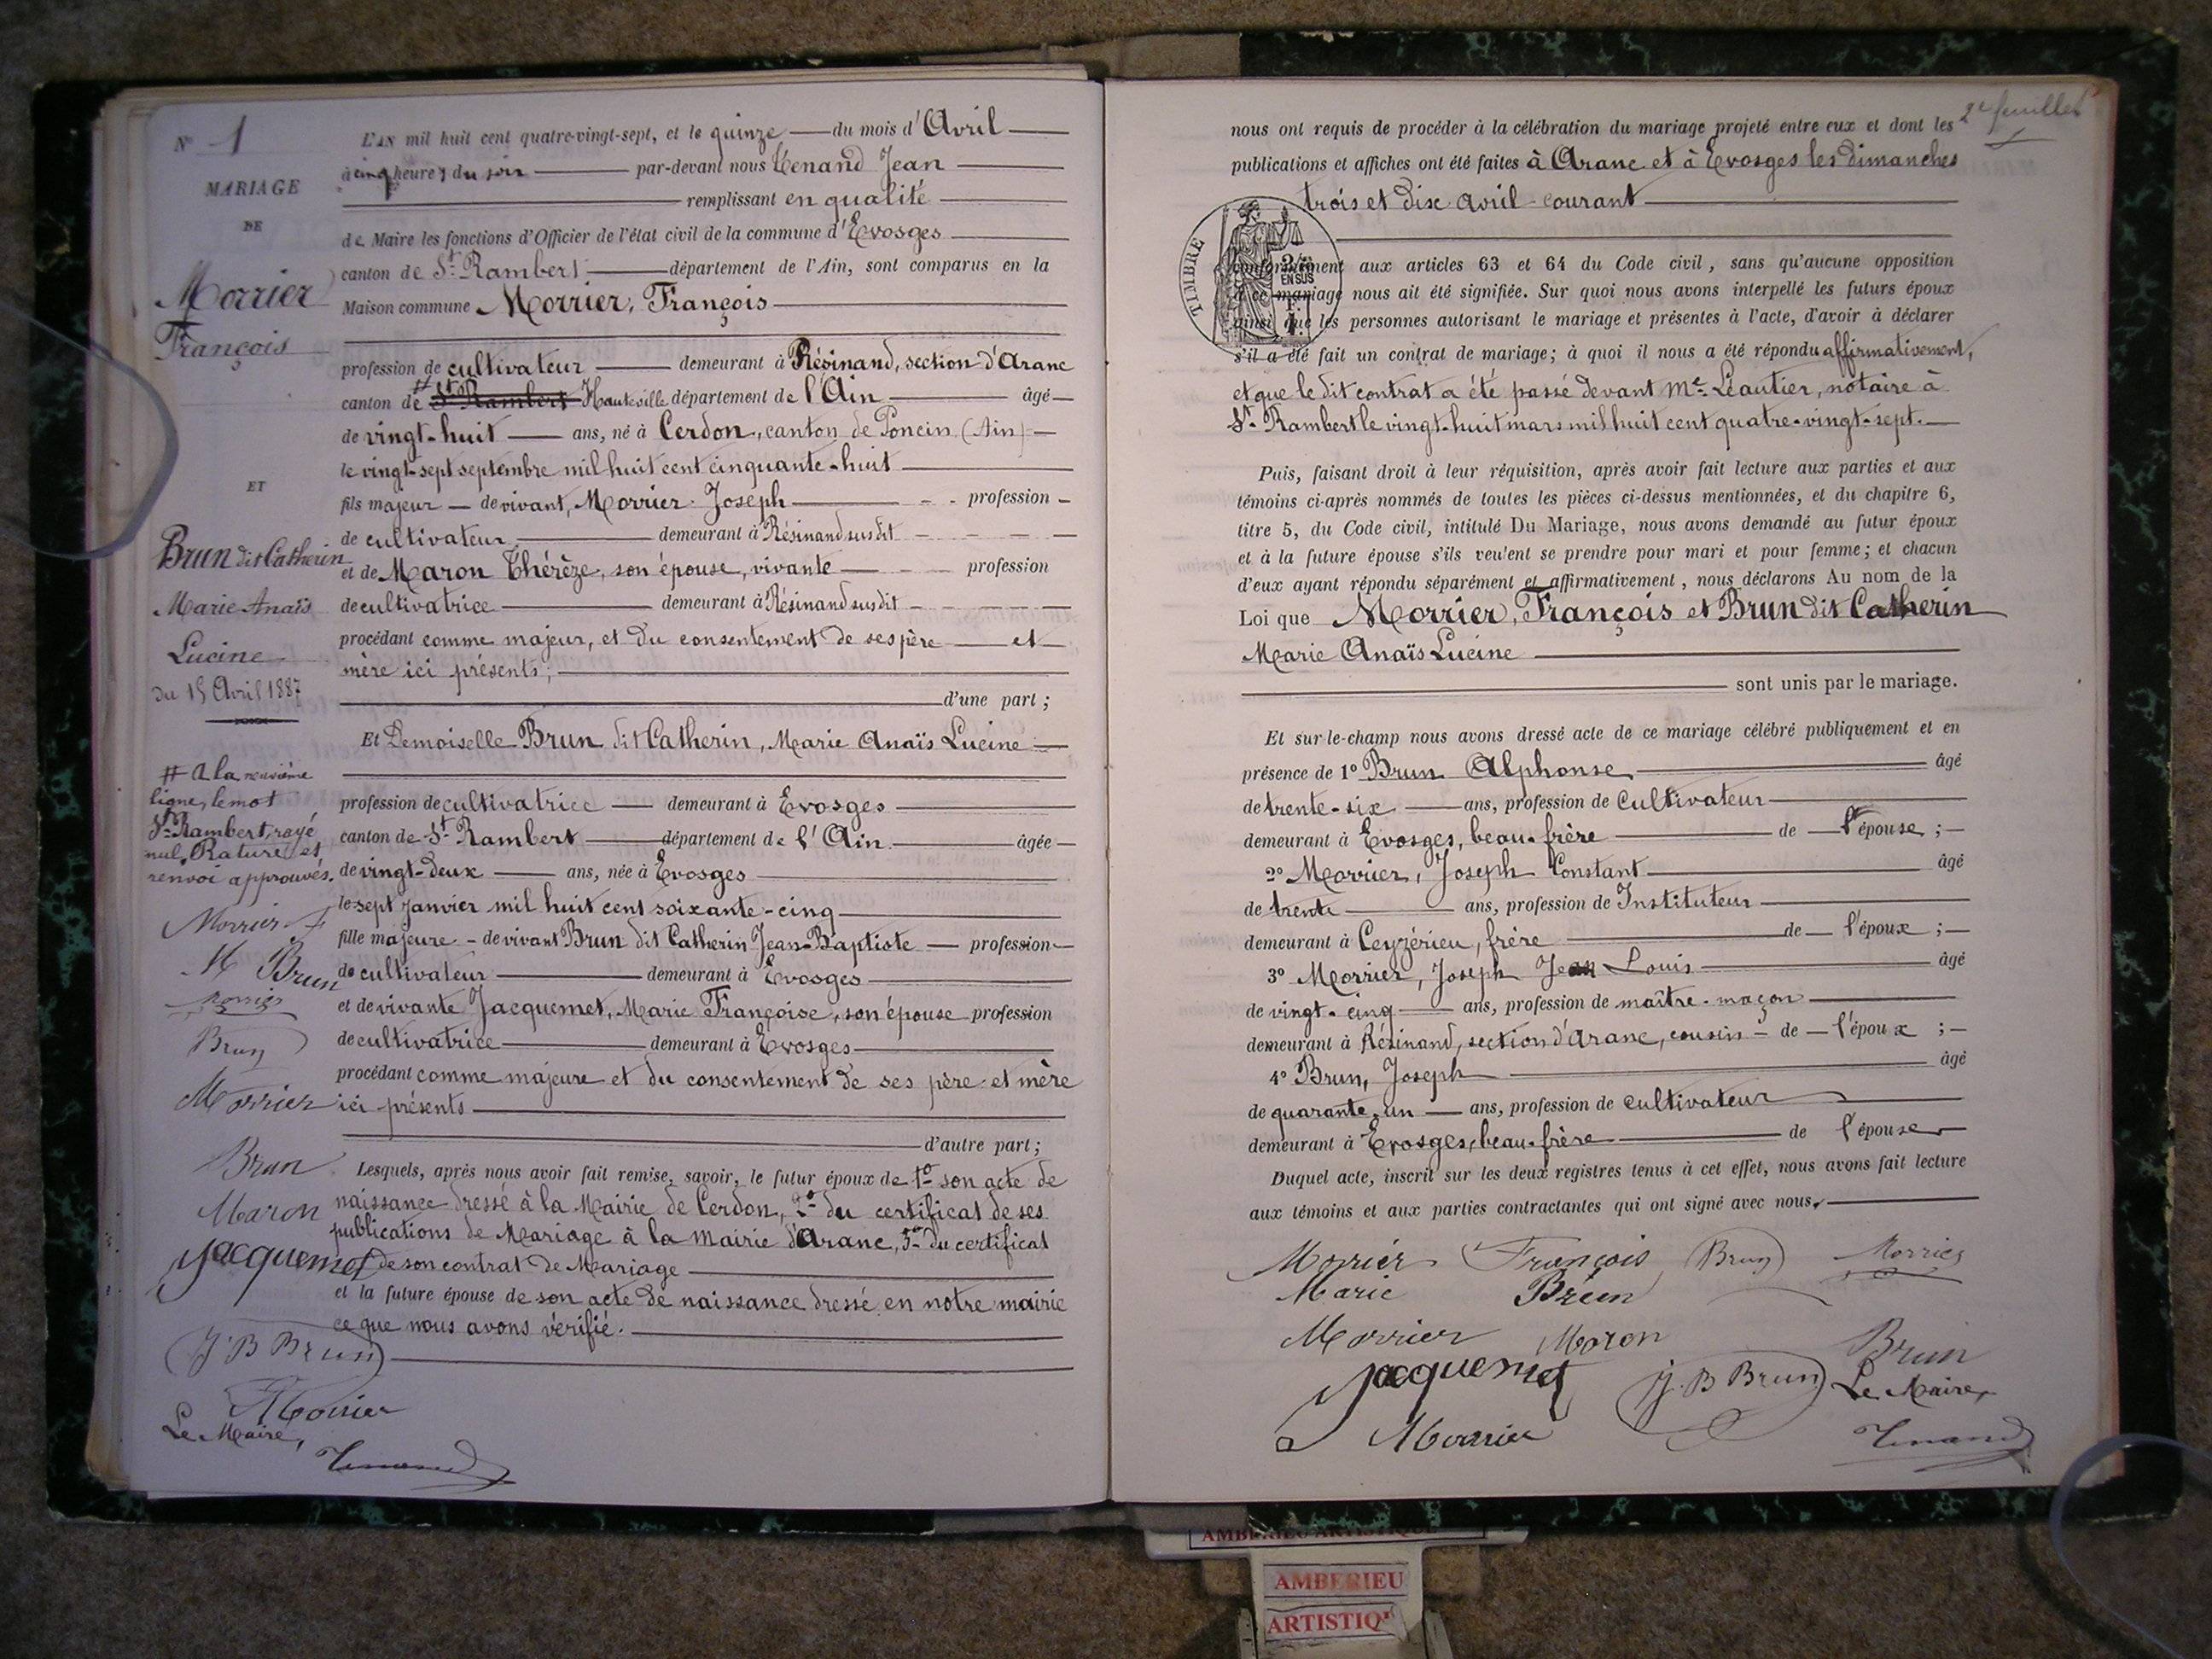 N° 1
MARIAGE
DE
Morrier
François
ET
Brun dit Catherin
Marie Anaïs
Lucine
du 15 Avril 1887
# A la neuvième
ligne, le mot
St Rambert, rayé
nul. Rature et
renvoi approuvés.
Morrier F
M Brun
Morrier
Brun
Morrier
Brun
Maron
Jacquemet
J B Brun
Morrier
Le Maire,
Tenand
L'AN mil huit cent quatre-vingt-sept, et le quinze du mois d'Avril
à cinq heures du soir par-devant nous Tenand Jean
remplissant en qualité
de Maire les fonctions d'Officier de l'état civil de la commune d'Evosges
canton de St Rambert département de l'Ain, sont comparus en la
Maison commune Morrier, François
profession de cultivateur demeurant à Résinand, section d'Aranc
canton de # St Rambert Hauteville département de l'Ain âgé
de vingt-huit ans, né à Cerdon, canton de Poncin (Ain)
le vingt-sept septembre mil huit cent cinquante-huit
fils majeur de vivant, Morrier Joseph profession
de cultivateur demeurant à Résinand susdit
et de Maron Thérèze, son épouse, vivante profession
de cultivatrice demeurant à Résinand susdit
procédant comme majeur, et du consentement de ses père et
mère ici présents;
d'une part;
Et Demoiselle Brun dit Catherin, Marie Anaïs Lucine
profession de cultivatrice demeurant à Evosges
canton de St Rambert département de l'Ain âgée
de vingt-deux ans, née à Evosges
le sept janvier mil huit cent soixante-cinq
fille majeure de vivant Brun dit Catherin Jean-Baptiste profession
de cultivateur demeurant à Evosges
et de vivante Jacquemet, Marie Françoise, son épouse profession
de cultivatrice demeurant à Evosges
procédant comme majeure et du consentement de ses père et mère
ici présents
d'autre part;
Lesquels, après nous avoir fait remise, savoir, le futur époux de 1° son acte de
naissance dressé à la Mairie de Cerdon, 2° du certificat de ses
publications de Mariage à la Mairie d'Aranc, 3° du certificat
de son contrat de Mariage
et la future épouse de son acte de naissance dressé en notre mairie
ce que nous avons vérifié.
2e feuillet
nous ont requis de procéder à la célébration du mariage projeté entre eux et dont les
publications et affiches ont été faites à Aranc et à Evosges les dimanches
trois et dix avril courant
TIMBRE
EN SUS
conformément aux articles 63 et 64 du Code civil, sans qu'aucune opposition
à ce mariage nous ait été signifiée. Sur quoi nous avons interpellé les futurs époux
ainsi que les personnes autorisant le mariage et présentes à l'acte, d'avoir à déclarer
s'il a été fait un contrat de mariage; à quoi il nous a été répondu affirmativement,
et que le dit contrat a été passé devant Me Léautier, notaire à
St Rambert le vingt-huit mars mil huit cent quatre-vingt-sept.
Puis, faisant droit à leur réquisition, après avoir fait lecture aux parties et aux
témoins ci-après nommés de toutes les pièces ci-dessus mentionnées, et du chapitre 6,
titre 5, du Code civil, intitulé Du Mariage, nous avons demandé au futur époux
et à la future épouse s'ils veulent se prendre pour mari et pour femme; et chacun
d'eux ayant répondu séparément et affirmativement, nous déclarons Au nom de la
Loi que Morrier, François et Brun dit Catherin
Marie Anaïs Lucine
sont unis par le mariage.
Et sur-le-champ nous avons dressé acte de ce mariage célébré publiquement et en
présence de 1° Brun Alphonse, âgé
de trente-six ans, profession de cultivateur
demeurant à Evosges, beau-frère de l'épouse;
2° Morrier, Joseph Constant âgé
de trente ans, profession de Instituteur
demeurant à Ceyzérieu, frère de l'époux;
3° Morrier, Joseph Jean Louis âgé
de vingt-cinq ans, profession de maître-maçon
demeurant à Résinand, section d'Aranc, cousin de l'époux;
4° Brun, Joseph âgé
de quarante-un ans, profession de cultivateur
demeurant à Evosges, beau-frère de l'épouse
Duquel acte, inscrit sur les deux registres tenus à cet effet, nous avons fait lecture
aux témoins et aux parties contractantes qui ont signé avec nous.
Morrier François Brun Morrier
Marie Brun
Morrier Maron Brun
Jacquemet J. B Brun Le Maire,
Morrier Tenand
AMBERIEU ARTISTIQUE
AMBERIEU
ARTISTIQ